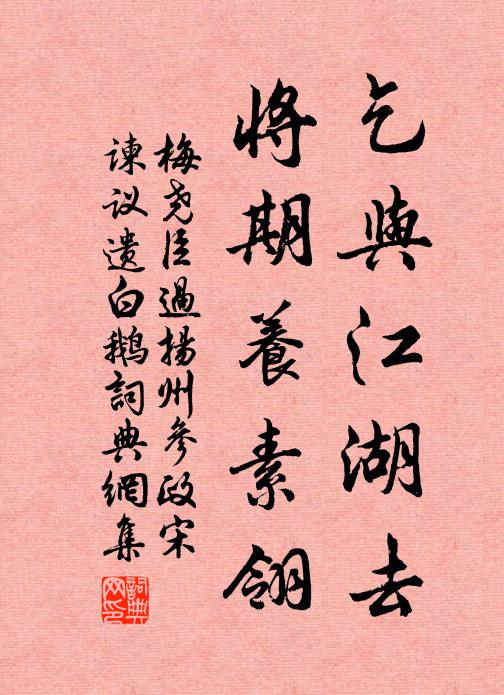 乞與江湖去
將期養素翎
梅堯臣過揚州參政宋
諫议遗白鵝詞典網集
詞典網印